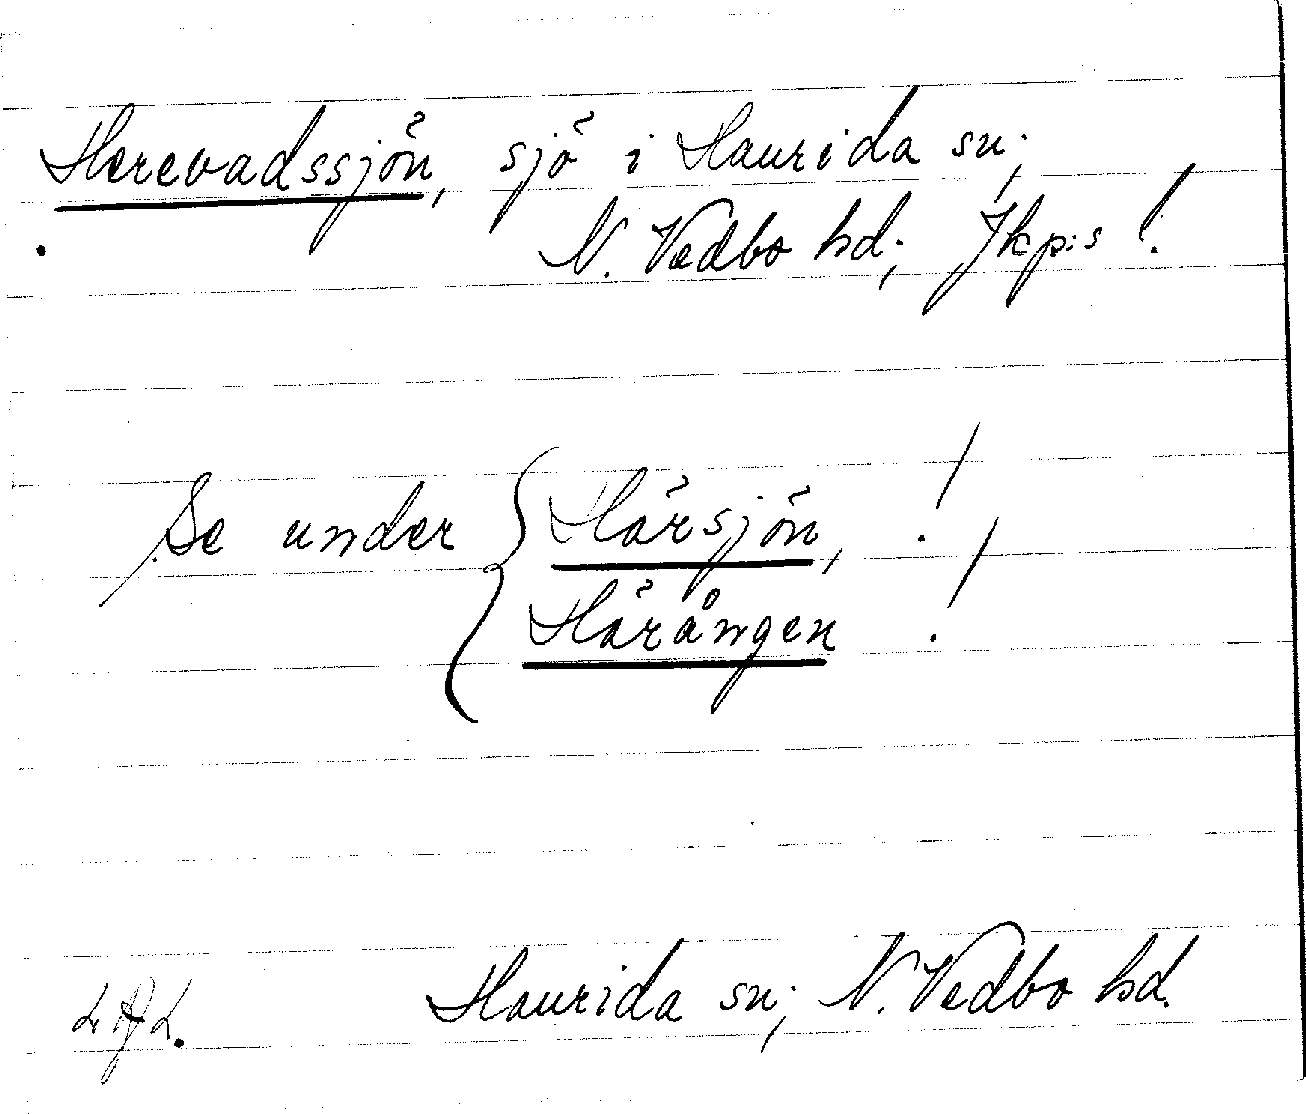 Herevadssjön, sjö i Haurida sn;
N. Vedbo hd; Jkp:s !
Se under { Härsjön, !
Härången !
Haurida sn; N. Vedbo hd.